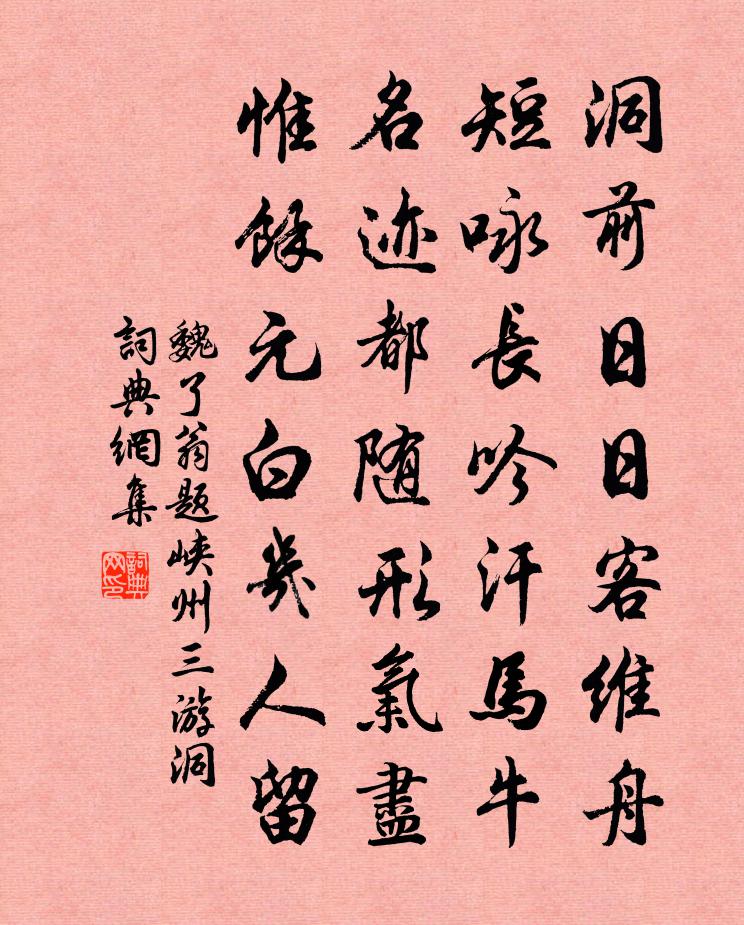 洞前日日客维舟
短咏長吟汗馬牛
名迹都随形氣盡
惟餘元白幾人留
魏了翁題峡州三游洞
詞典網集
詞典網印